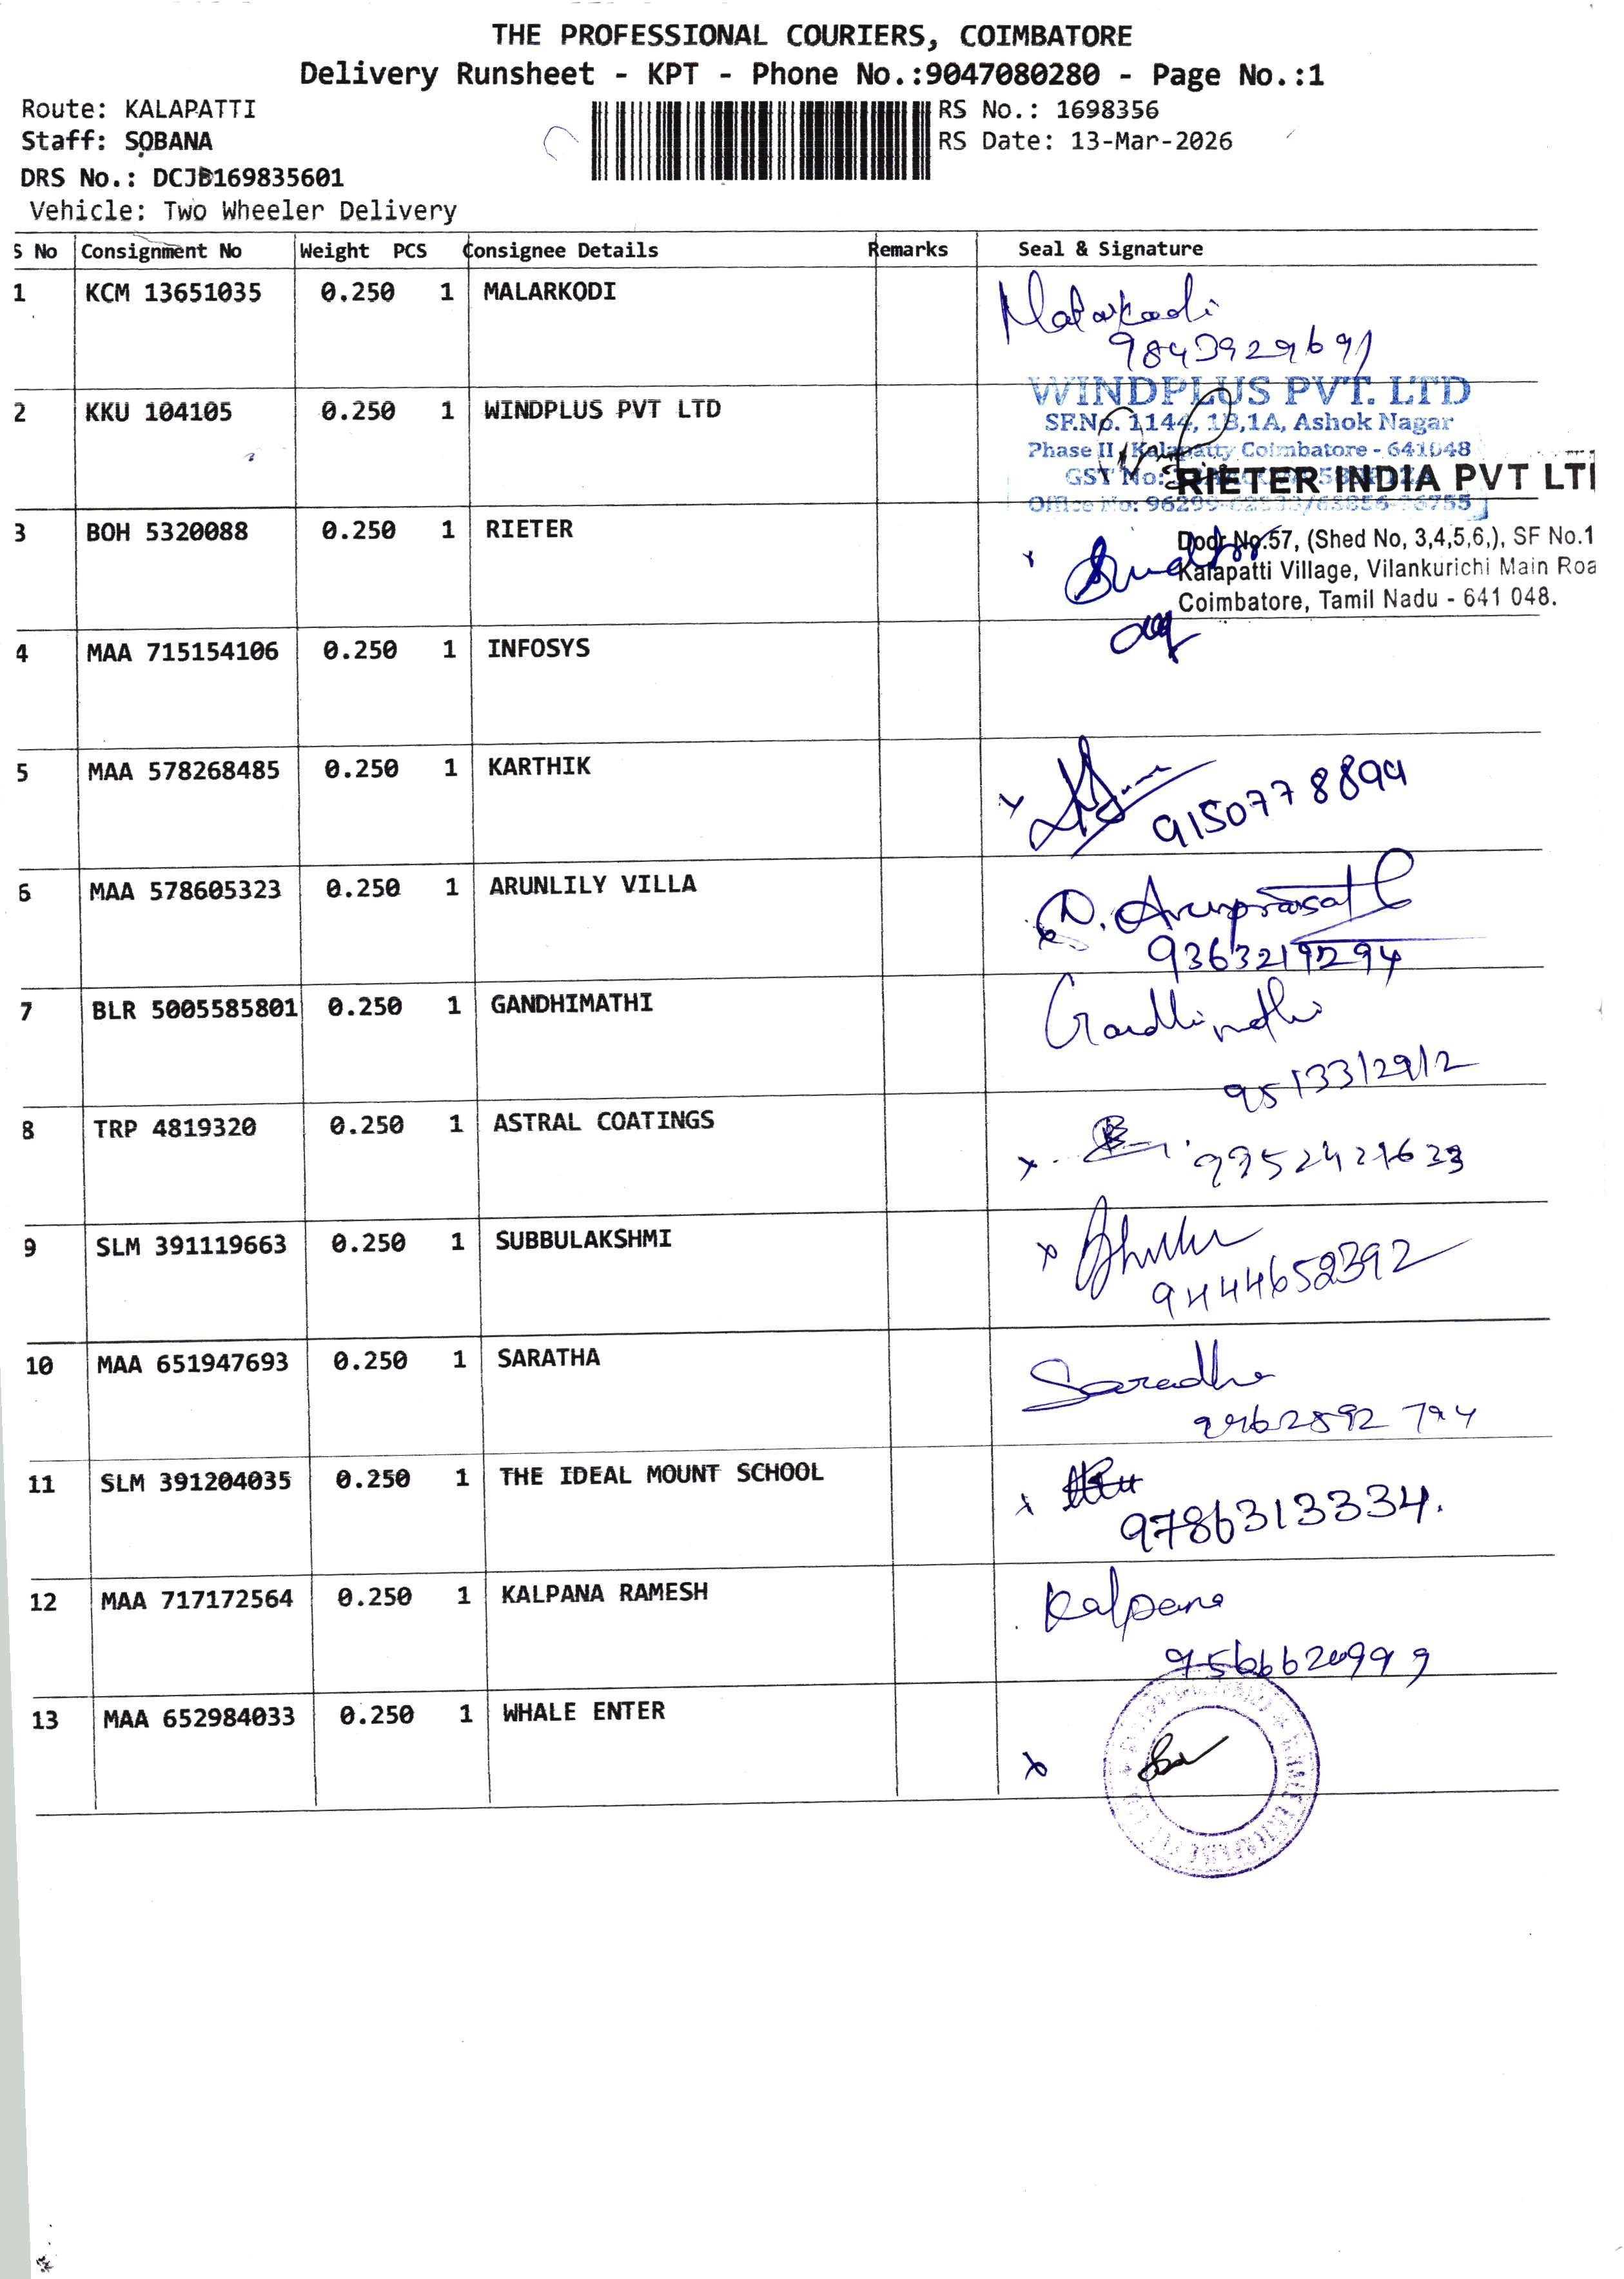 THE PROFESSIONAL COURIERS, COIMBATORE
Delivery Runsheet - KPT - Phone No.:9047080280 - Page No.:1
Route: KALAPATTI
RS No.: 1698356
Staff: SOBANA
RS Date: 13-Mar-2026
DRS No.: DCJB169835601
Vehicle: Two Wheeler Delivery
S No Consignment No Weight PCS Consignee Details Remarks Seal & Signature
1 KCM 13651035 0.250 1 MALARKODI Malarkodi
9843929691
2 KKU 104105 0.250 1 WINDPLUS PVT LTD
WINDPLUS PVT. LTD
SF.No. 1144, 1B,1A, Ashok Nagar
Phase II, Kalapatty Coimbatore - 641048
GST No:
Office No: 96299
RIETER INDIA PVT LT
3 BOH 5320088 0.250 1 RIETER
Door No.57, (Shed No, 3,4,5,6,), SF No.1
Kalapatti Village, Vilankurichi Main Roa
Coimbatore, Tamil Nadu - 641 048.
4 MAA 715154106 0.250 1 INFOSYS
5 MAA 578268485 0.250 1 KARTHIK
9150778894
6 MAA 578605323 0.250 1 ARUNLILY VILLA D. Arunprasath
7 BLR 5005585801 0.250 1 GANDHIMATHI
9513312912
8 TRP 4819320 0.250 1 ASTRAL COATINGS
9 SLM 391119663 0.250 1 SUBBULAKSHMI
9444652392
10 MAA 651947693 0.250 1 SARATHA Saradha
11 SLM 391204035 0.250 1 THE IDEAL MOUNT SCHOOL
9786313334.
12 MAA 717172564 0.250 1 KALPANA RAMESH Kalpana
13 MAA 652984033 0.250 1 WHALE ENTER